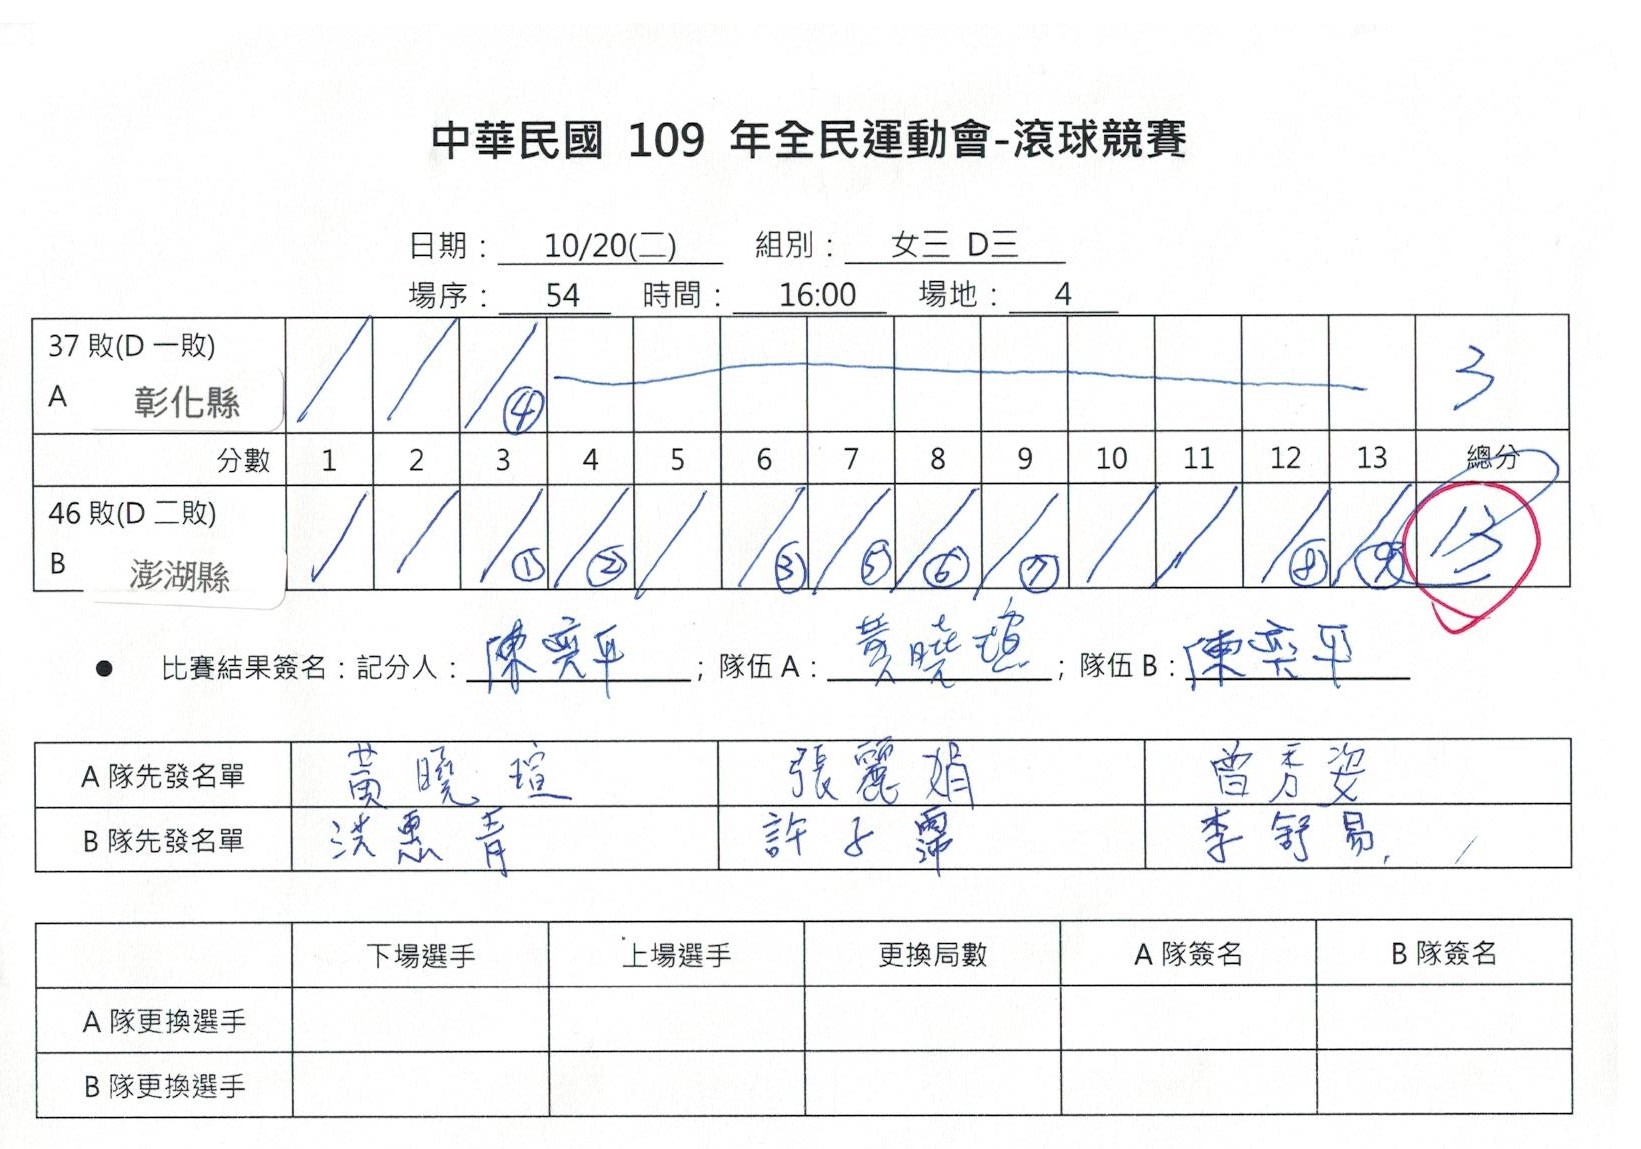 中華民國 109 年全民運動會-滾球競賽
日期：10/20(二) 組別：女三 D三
場序：54 時間：16:00 場地：4
37 敗(D 一敗)
A 彰化縣 ④ 3
分數 1 2 3 4 5 6 7 8 9 10 11 12 13 總分
46 敗(D 二敗)
B 澎湖縣 ① ② ③ ⑤ ⑥ ⑦ ⑧ ⑨ 13
● 比賽結果簽名：記分人：陳奕平；隊伍 A：黃曉瑄；隊伍 B：陳奕平
A 隊先發名單 黃曉瑄 張麗娟 曾秀姿
B 隊先發名單 洪惠青 許子霈 李舒易
下場選手 上場選手 更換局數 A 隊簽名 B 隊簽名
A 隊更換選手
B 隊更換選手